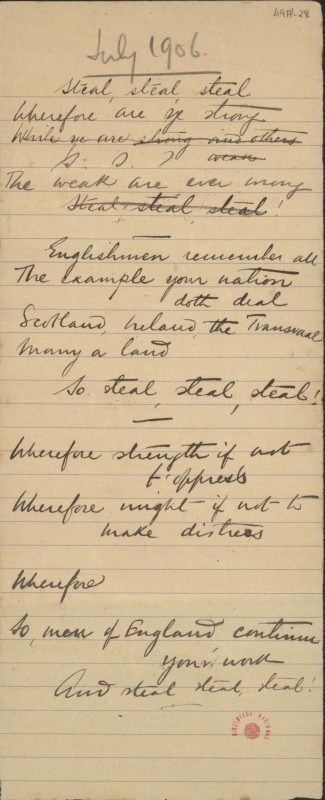 49A1-28
July 1906.
Steal, steal, steal
Wherefore are ye strong
While ye are strong and others
S. S. S weak
The weak are ever wrong
Steal, steal, steal!
Englishmen remember all
The example your nation
doth deal
Scotland, Ireland, the Transvaal
Many a land
So steal, steal, steal!
Wherefore strength if not
t'oppress
Wherefore might if not to
make distress
Wherefore
So, men of England continue
your work
And steal steal, steal!
BIBLIOTECA NACIONAL